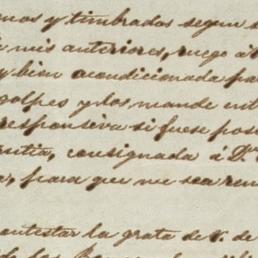 mos y timbrados segun s
mis anteriores, ruego á
y bien acondicionada pa
golpes y los mande ent
responsiva si fuese pos
antia, consignada á D.n
, para que me sea rem
contestar la grata de V. de